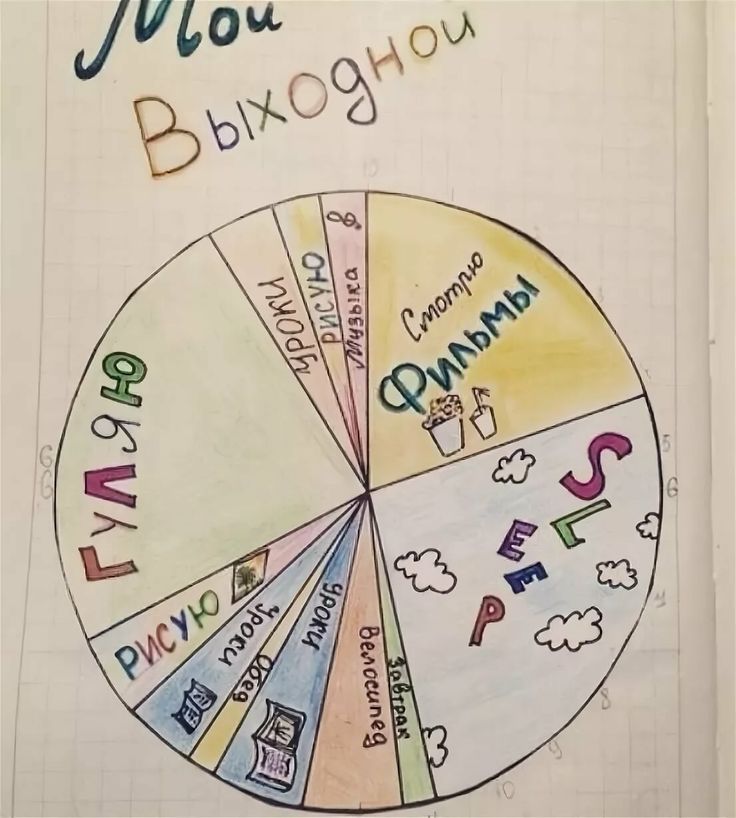 Мой
Выходной
Смотрю
Фильмы
SLEEP
Завтрак
Велосипед
уроки
Обед
уроки
РИСУЮ
ГУЛЯЮ
уроки
РИСУЮ
Музыка
6
6
5
6
8
9
10